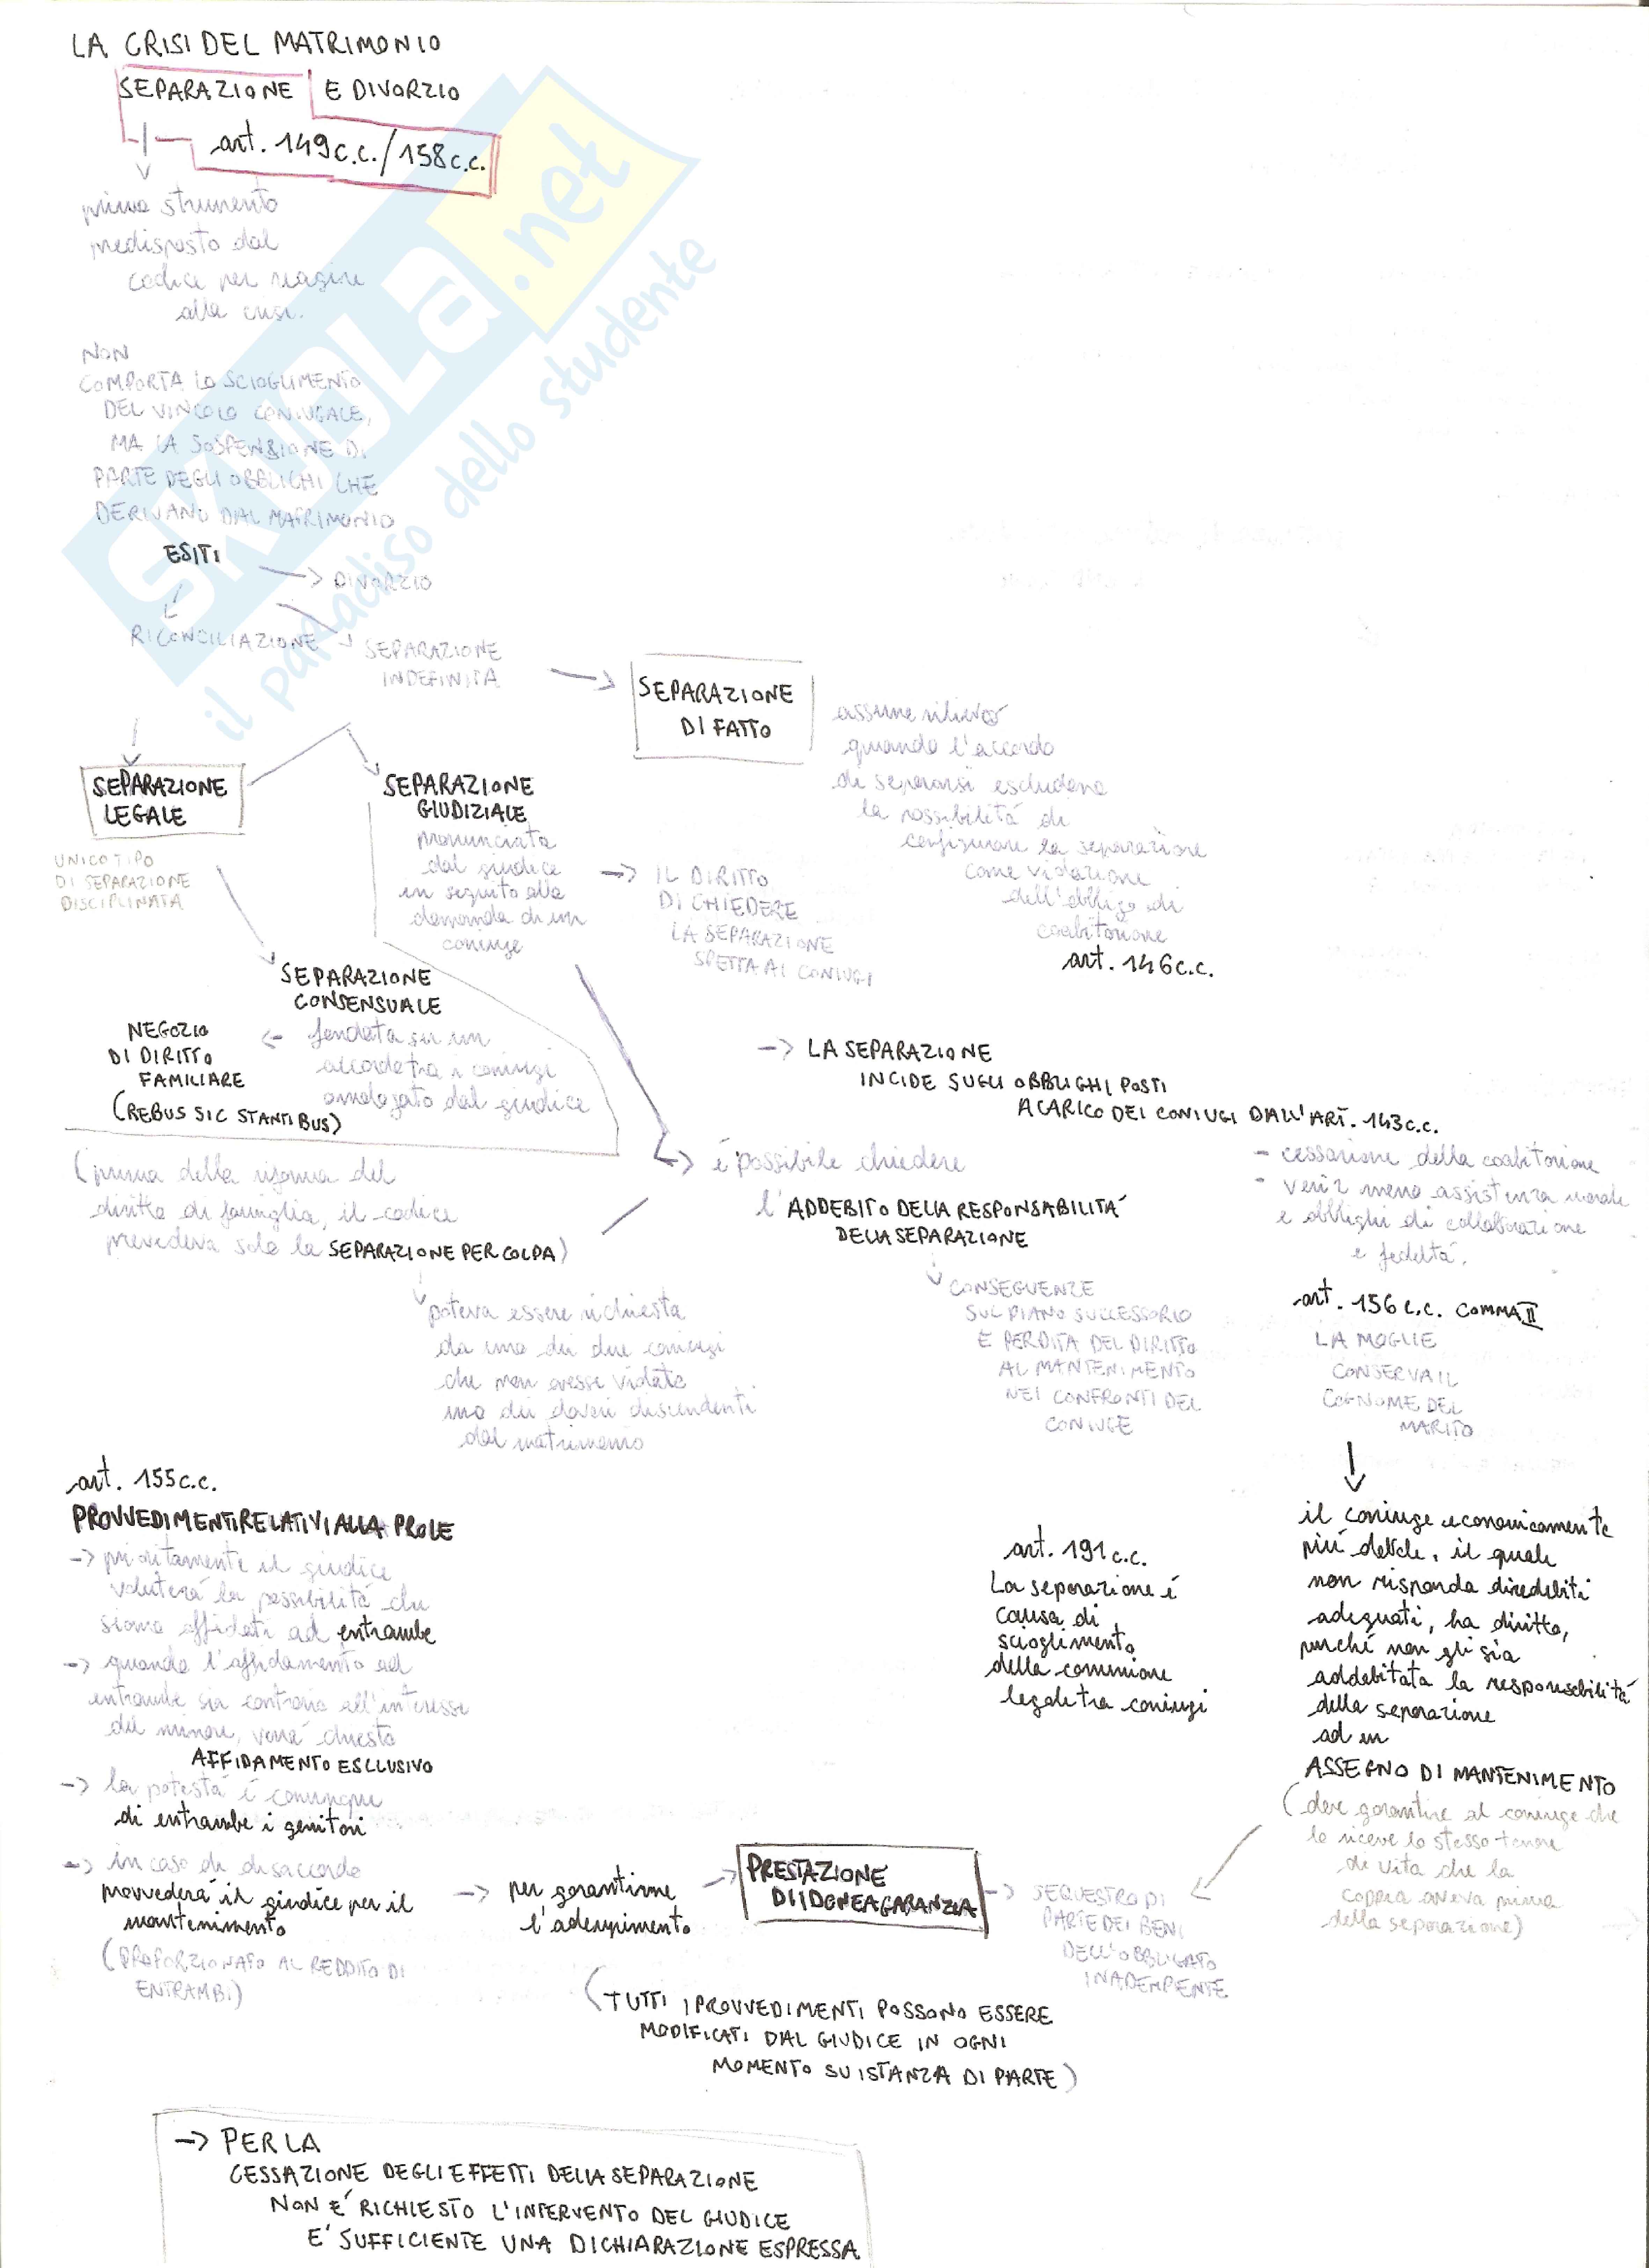 LA CRISI DEL MATRIMONIO
SEPARAZIONE E DIVORZIO
art. 149 c.c./158 c.c.
primo strumento
predisposto dal
codice per reagire
alla crisi.
NON
COMPORTA LO SCIOGLIMENTO
DEL VINCOLO CONIUGALE,
MA LA SOSPENSIONE DI
PARTE DEGLI OBBLICHI CHE
DERIVANO DAL MATRIMONIO
ESITI
-> DIVORZIO
RICONCILIAZIONE
SEPARAZIONE
INDEFINITA
SEPARAZIONE
DI FATTO
assume rilievo
quando l'accordo
di separarsi escludono
la possibilitá di
configurare la separazione
come violazione
dell'obbligo di
coabitazione
art. 146 c.c.
SEPARAZIONE
LEGALE
UNICO TIPO
DI SEPARAZIONE
DISCIPLINATA
SEPARAZIONE
GIUDIZIALE
pronunciata
dal giudice
in seguito alla
domanda di un
coniuge
-> IL DIRITTO
DI CHIEDERE
LA SEPARAZIONE
SPETTA AI CONIUGI
SEPARAZIONE
CONSENSUALE
fondata su un
accordo tra i coniugi
omologato dal giudice
NEGOZIO
DI DIRITTO
FAMILIARE
(REBUS SIC STANTIBUS)
-> LA SEPARAZIONE
INCIDE SUGLI OBBLIGHI POSTI
A CARICO DEI CONIUGI DALL'ART. 143 c.c.
- cessazione della coabitazione
- venir meno assistenza morale
e obblighi di collaborazione
e fedeltá.
(prima della riforma del
diritto di famiglia, il codice
prevedeva solo la SEPARAZIONE PER COLPA)
poteva essere richiesta
da uno dei due coniugi
che non avesse violato
uno dei doveri discendenti
dal matrimonio
é possibile chiedere
l'ADDEBITO DELLA RESPONSABILITÁ
DELLA SEPARAZIONE
CONSEGUENZE
SUL PIANO SUCCESSORIO
E PERDITA DEL DIRITTO
AL MANTENIMENTO
NEI CONFRONTI DEL
CONIUGE
art. 156 c.c. COMMA II
LA MOGLIE
CONSERVA IL
COGNOME DEL
MARITO
il coniuge economicamente
piú debole, il quale
non risponda di debiti
adeguati, ha diritto,
purché non gli sia
addebitata la responsabilitá
della separazione
ad un
ASSEGNO DI MANTENIMENTO
(deve garantire al coniuge che
lo riceve lo stesso tenore
di vita che la
coppia aveva prima
della separazione)
art. 191 c.c.
La separazione é
causa di
scioglimento
della comunione
legale tra coniugi
art. 155 c.c.
PROVVEDIMENTI RELATIVI ALLA PROLE
-> prioritamente il giudice
valuterá la possibilitá che
siano affidati ad entrambe
-> quando l'affidamento ad
entrambe sia contrario all'interesse
del minore, verrá chiesto
AFFIDAMENTO ESCLUSIVO
-> la potestá é comunque
di entrambe i genitori
-> in caso di disaccordo
provvederá il giudice per il
mantenimento
(PROPORZIONATO AL REDDITO DI
ENTRAMBI)
-> per garantirne
l'adempimento
-> PRESTAZIONE
DI IDONEA GARANZIA
-> SEQUESTRO DI
PARTE DEI BENI
DELL'OBBLIGATO
INADEMPIENTE
(TUTTI I PROVVEDIMENTI POSSONO ESSERE
MODIFICATI DAL GIUDICE IN OGNI
MOMENTO SU ISTANZA DI PARTE)
-> PER LA
CESSAZIONE DEGLI EFFETTI DELLA SEPARAZIONE
NON É RICHIESTO L'INTERVENTO DEL GIUDICE
É SUFFICIENTE UNA DICHIARAZIONE ESPRESSA
SKUOLA.net
il paradiso dello studente